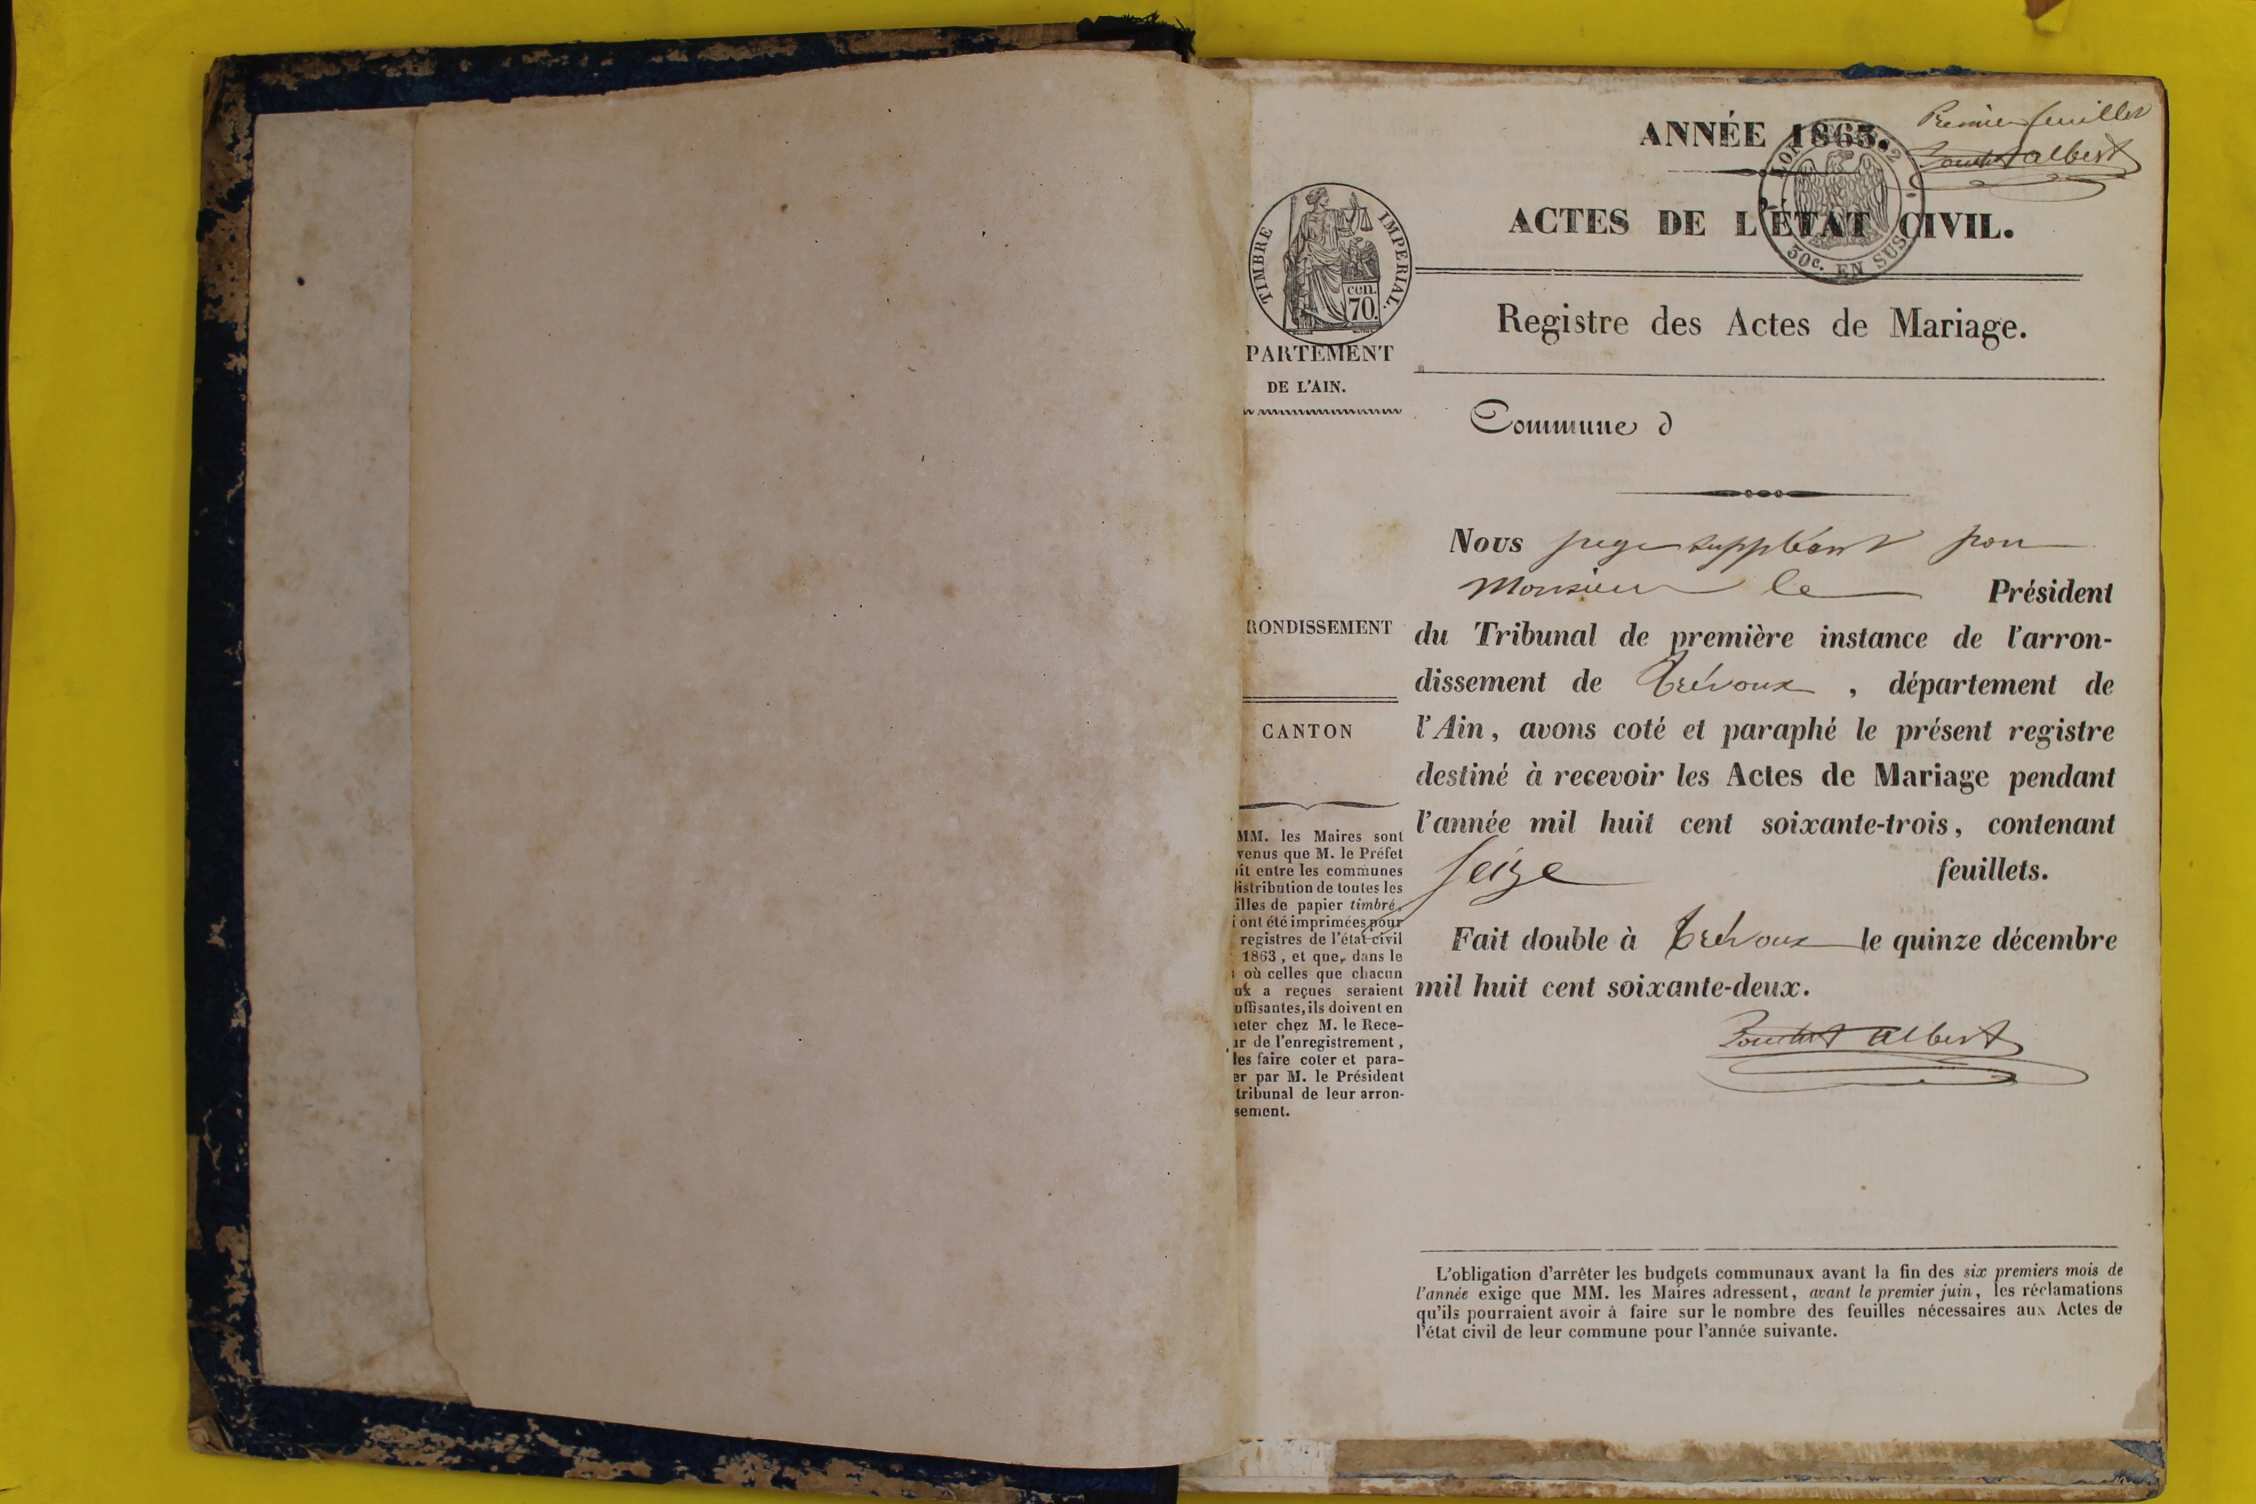 Premier feuillet
albert
ANNÉE 1863.
LOI 2
30c. EN SUS
ACTES DE L'ÉTAT CIVIL.
Registre des Actes de Mariage.
TIMBRE IMPERIAL.
cen.
70.
PARTEMENT
DE L'AIN.
Commune d
Nous juge suppléant pour
Monsieur le Président
du Tribunal de première instance de l'arron-
dissement de Trévoux, département de
l'Ain, avons coté et paraphé le présent registre
destiné à recevoir les Actes de Mariage pendant
l'année mil huit cent soixante-trois, contenant
seize feuillets.
Fait double à Trévoux le quinze décembre
mil huit cent soixante-deux.
albert
RONDISSEMENT
CANTON
MM. les Maires sont
venus que M. le Préfet
it entre les communes
distribution de toutes les
illes de papier timbré,
i ont été imprimées pour
registres de l'état civil
1863, et que, dans le
où celles que chacun
ux a reçues seraient
uffisantes, ils doivent en
heter chez M. le Rece-
ur de l'enregistrement,
les faire coter et para-
er par M. le Président
tribunal de leur arron-
sement.
L'obligation d'arrêter les budgets communaux avant la fin des six premiers mois de
l'année exige que MM. les Maires adressent, avant le premier juin, les réclamations
qu'ils pourraient avoir à faire sur le nombre des feuilles nécessaires aux Actes de
l'état civil de leur commune pour l'année suivante.